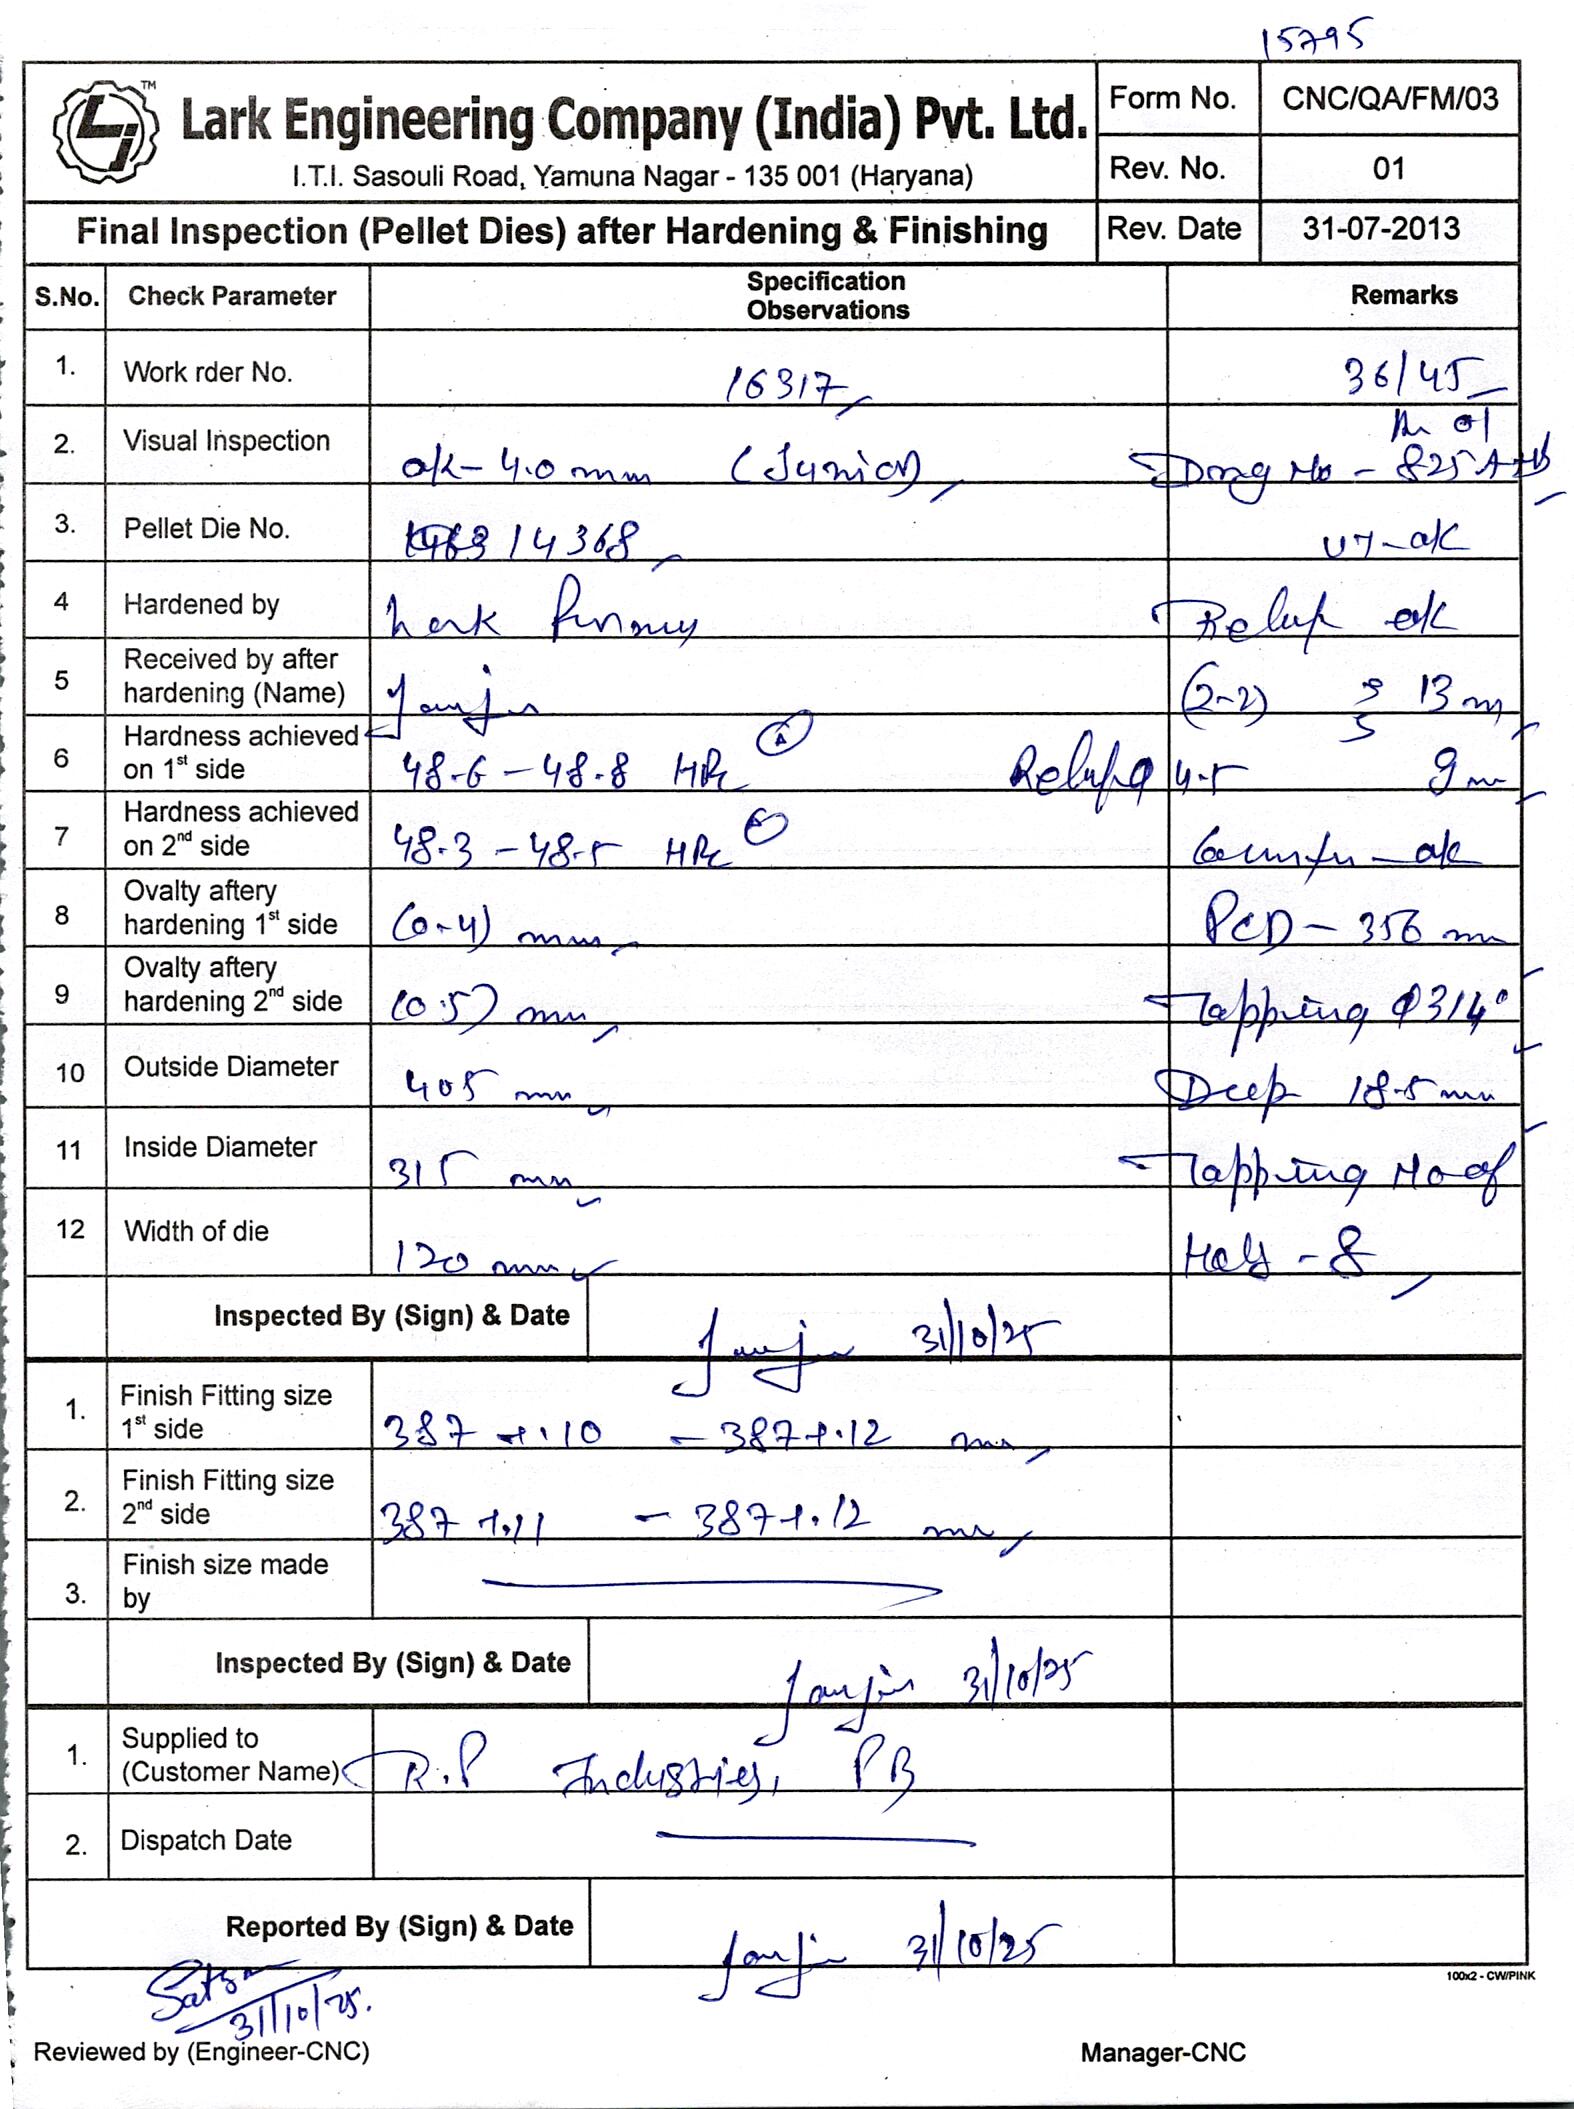 15795
TM
Lark Engineering Company (India) Pvt. Ltd.
I.T.I. Sasouli Road, Yamuna Nagar - 135 001 (Haryana)
Form No. CNC/QA/FM/03
Rev. No. 01
Final Inspection (Pellet Dies) after Hardening & Finishing
Rev. Date 31-07-2013
S.No. Check Parameter Specification Observations Remarks
1. Work rder No. 16317 36/45
2. Visual Inspection ok - 4.0 mm (Junior) Drng No - 825 A+B
3. Pellet Die No. 14368 UT-ok
4 Hardened by Lark Relup ok
5 Received by after hardening (Name) (2-2) 13 m
6 Hardness achieved on 1st side 48.6 - 48.8 HRc A 4.5 9 m
7 Hardness achieved on 2nd side 48.3 - 48.5 HRc - ok
8 Ovalty aftery hardening 1st side (0.4) mm PCD - 356 mm
9 Ovalty aftery hardening 2nd side (0.5) mm Tapping Φ 3/4"
10 Outside Diameter 405 mm Deep 18.5 mm
11 Inside Diameter 315 mm Tapping No of
12 Width of die 120 mm - 8
Inspected By (Sign) & Date 31/10/25
1. Finish Fitting size 1st side 387 +.10 - 387+.12 mm
2. Finish Fitting size 2nd side 387 +.11 - 387+.12 mm
3. Finish size made by
Inspected By (Sign) & Date 31/10/25
1. Supplied to (Customer Name) R.P Industries, PB
2. Dispatch Date
Reported By (Sign) & Date 31/10/25
100x2 - CW/PINK
31/10/25.
Reviewed by (Engineer-CNC) Manager-CNC